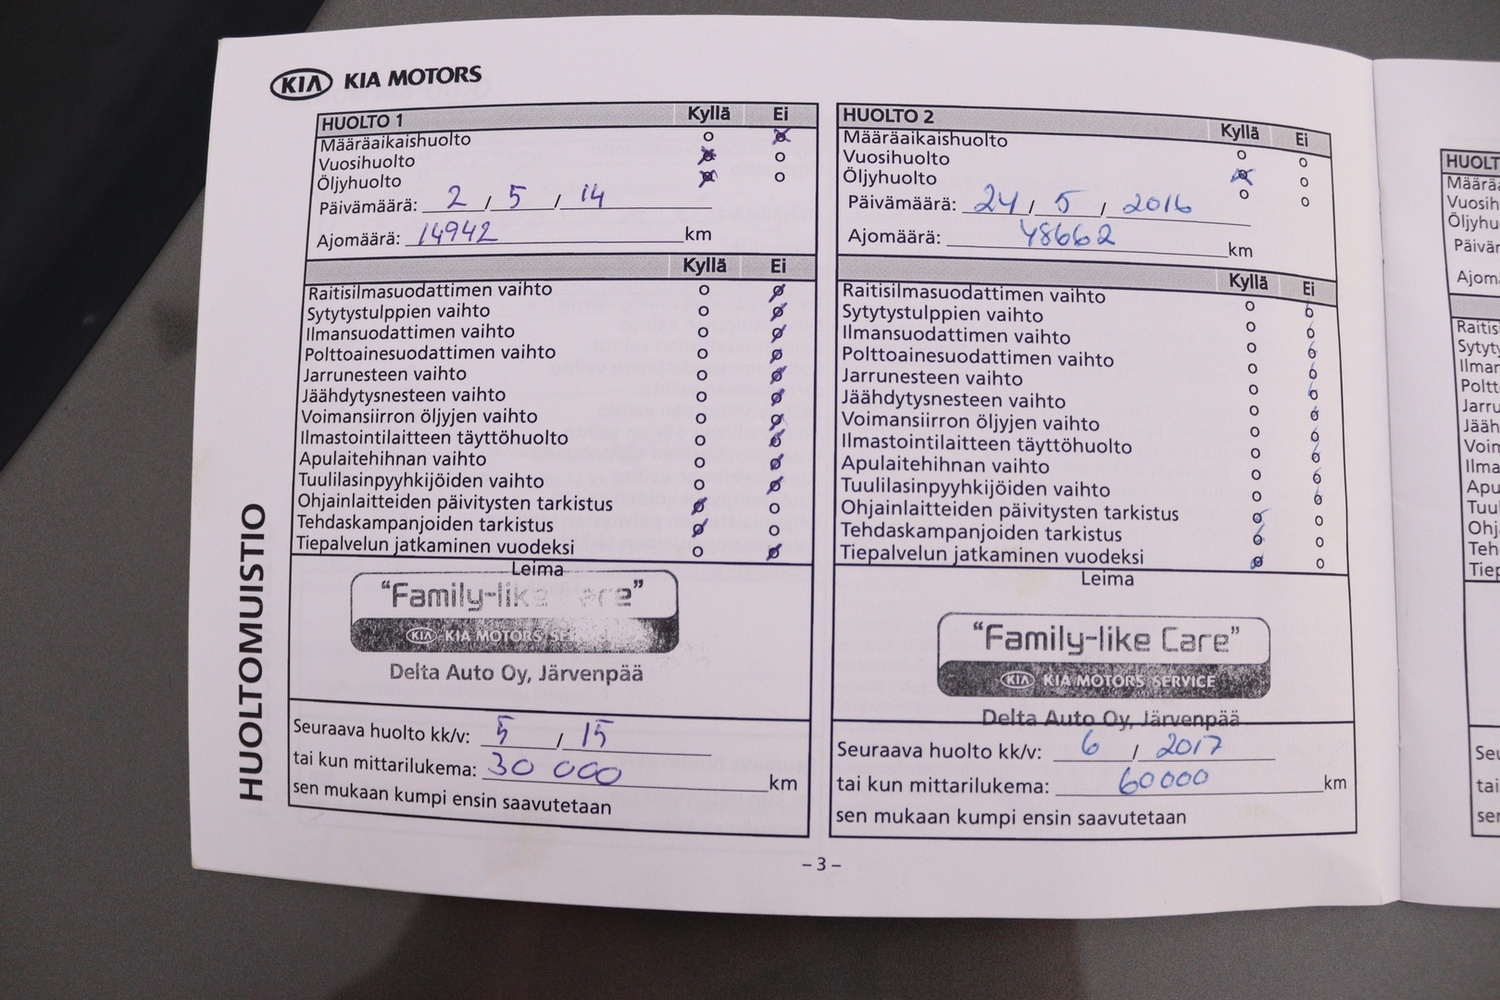 KIA KIA MOTORS
HUOLTOMUISTIO
HUOLTO 1 Kyllä Ei
Määräaikaishuolto
Vuosihuolto
Öljyhuolto
Päivämäärä: 2 / 5 / 14
Ajomäärä: 14942 km
Kyllä Ei
Raitisilmasuodattimen vaihto
Sytytystulppien vaihto
Ilmansuodattimen vaihto
Polttoainesuodattimen vaihto
Jarrunesteen vaihto
Jäähdytysnesteen vaihto
Voimansiirron öljyjen vaihto
Ilmastointilaitteen täyttöhuolto
Apulaitehihnan vaihto
Tuulilasinpyyhkijöiden vaihto
Ohjainlaitteiden päivitysten tarkistus
Tehdaskampanjoiden tarkistus
Tiepalvelun jatkaminen vuodeksi
Leima
"Family-like Care"
KIA KIA MOTORS SERVICE
Delta Auto Oy, Järvenpää
Seuraava huolto kk/v: 5 / 15
tai kun mittarilukema: 30 000 km
sen mukaan kumpi ensin saavutetaan
HUOLTO 2 Kyllä Ei
Määräaikaishuolto
Vuosihuolto
Öljyhuolto
Päivämäärä: 24 / 5 / 2016
Ajomäärä: 48662 km
Kyllä Ei
Raitisilmasuodattimen vaihto
Sytytystulppien vaihto
Ilmansuodattimen vaihto
Polttoainesuodattimen vaihto
Jarrunesteen vaihto
Jäähdytysnesteen vaihto
Voimansiirron öljyjen vaihto
Ilmastointilaitteen täyttöhuolto
Apulaitehihnan vaihto
Tuulilasinpyyhkijöiden vaihto
Ohjainlaitteiden päivitysten tarkistus
Tehdaskampanjoiden tarkistus
Tiepalvelun jatkaminen vuodeksi
Leima
"Family-like Care"
KIA KIA MOTORS SERVICE
Delta Auto Oy, Järvenpää
Seuraava huolto kk/v: 6 / 2017
tai kun mittarilukema: 60000 km
sen mukaan kumpi ensin saavutetaan
– 3 –